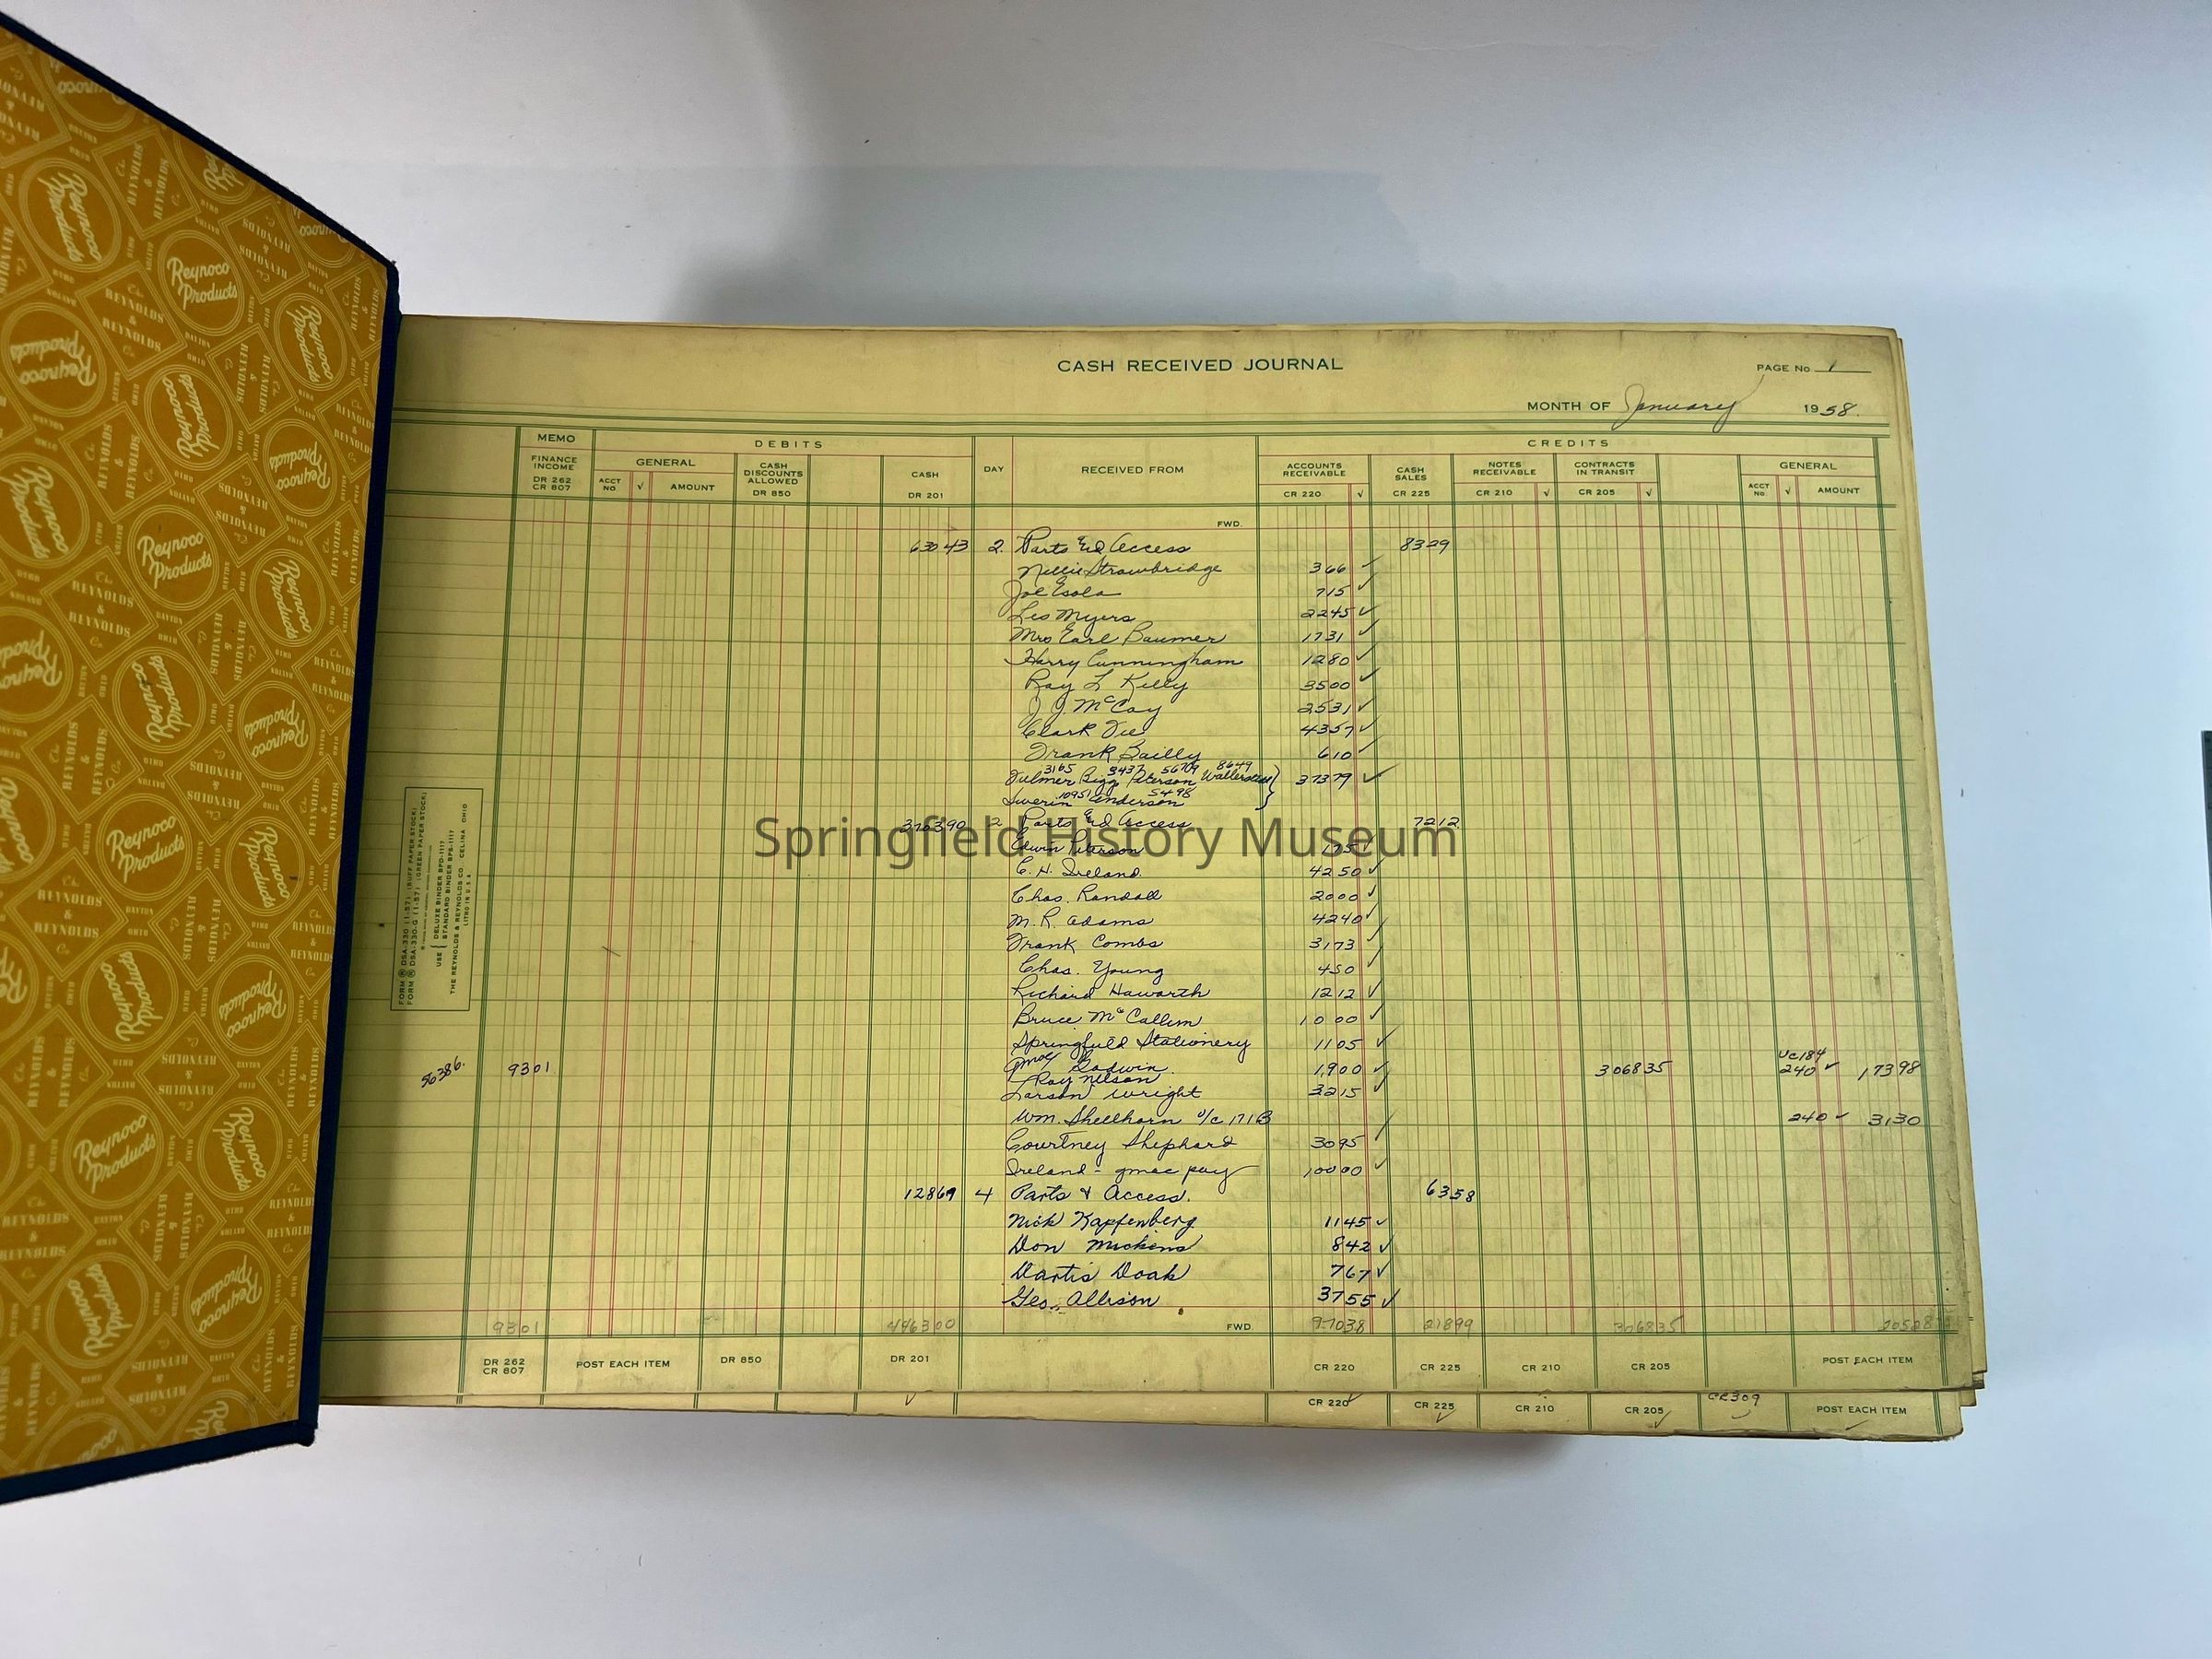 CASH RECEIVED JOURNAL
PAGE No 1
MONTH OF January 1958.
MEMO
DEBITS
CREDITS
FINANCE INCOME DR 262 CR 807
GENERAL
ACCT NO √ AMOUNT
CASH DISCOUNTS ALLOWED DR 850
CASH DR 201
DAY
RECEIVED FROM
ACCOUNTS RECEIVABLE CR 220 √
CASH SALES CR 225
NOTES RECEIVABLE CR 210 √
CONTRACTS IN TRANSIT CR 205 √
GENERAL
ACCT NO √ AMOUNT
FWD.
63043 2 Parts and Access 8329
Nellie Strawbridge 366 ✓
Joe Esola 715 ✓
Leo Myers 2245 ✓
Mrs Earl Baumer 1731 ✓
Harry Cunningham 1280 ✓
Ray L Kelly 3500 ✓
J.J. McCoy 2531 ✓
Clark 4357 ✓
Frank Bailly 610 ✓
3165 3437 56709 8649
Fulmer Bigg Peterson 37379 ✓
10951 5498
Anderson
376390 2 Parts and Access 7212
Edwin Peterson
E. H. Ireland 4250 ✓
Chas. Randall 2000 ✓
M. R. Adams 4240 ✓
Frank Combs 3173 ✓
Chas. Young 450 ✓
Richard Haworth 1212 ✓
Bruce McCallum 1000 ✓
Springfield Stationery 1105 ✓
56386. 9301 gmac Godwin 1900 ✓ 306835 uc184 240 ✓ 17398
Roy Nelson
Larson Wright 3215 ✓
Wm. Shellhorn u/c 171B 240 ✓ 3130
Courtney Shephard 3095 ✓
Ireland - gmac pay 10000 ✓
12869 4 Parts & Access. 6358
Nick Kapfenberg 1145 ✓
Don Mickens 842 ✓
Doak 767 ✓
Geo. Allison 3755 ✓
9301 446300 FWD. 97038 21899 306835 20528
DR 262 CR 807 POST EACH ITEM DR 850 DR 201 CR 220 CR 225 CR 210 CR 205 POST EACH ITEM
✓ CR 220 ✓ CR 225 ✓ CR 210 CR 205 ✓ CR309 POST EACH ITEM
FORM R DSA-330 (1-57) (BUFF PAPER STOCK)
FORM R DSA-330-G (1-57) (GREEN PAPER STOCK)
USE { DELUXE BINDER BPD-1117
STANDARD BINDER BPS-1117
THE REYNOLDS & REYNOLDS CO. CELINA, OHIO
LITHO IN U.S.A.
Reynoco Products
REYNOLDS & REYNOLDS Co.
DAYTON OHIO
Springfield History Museum